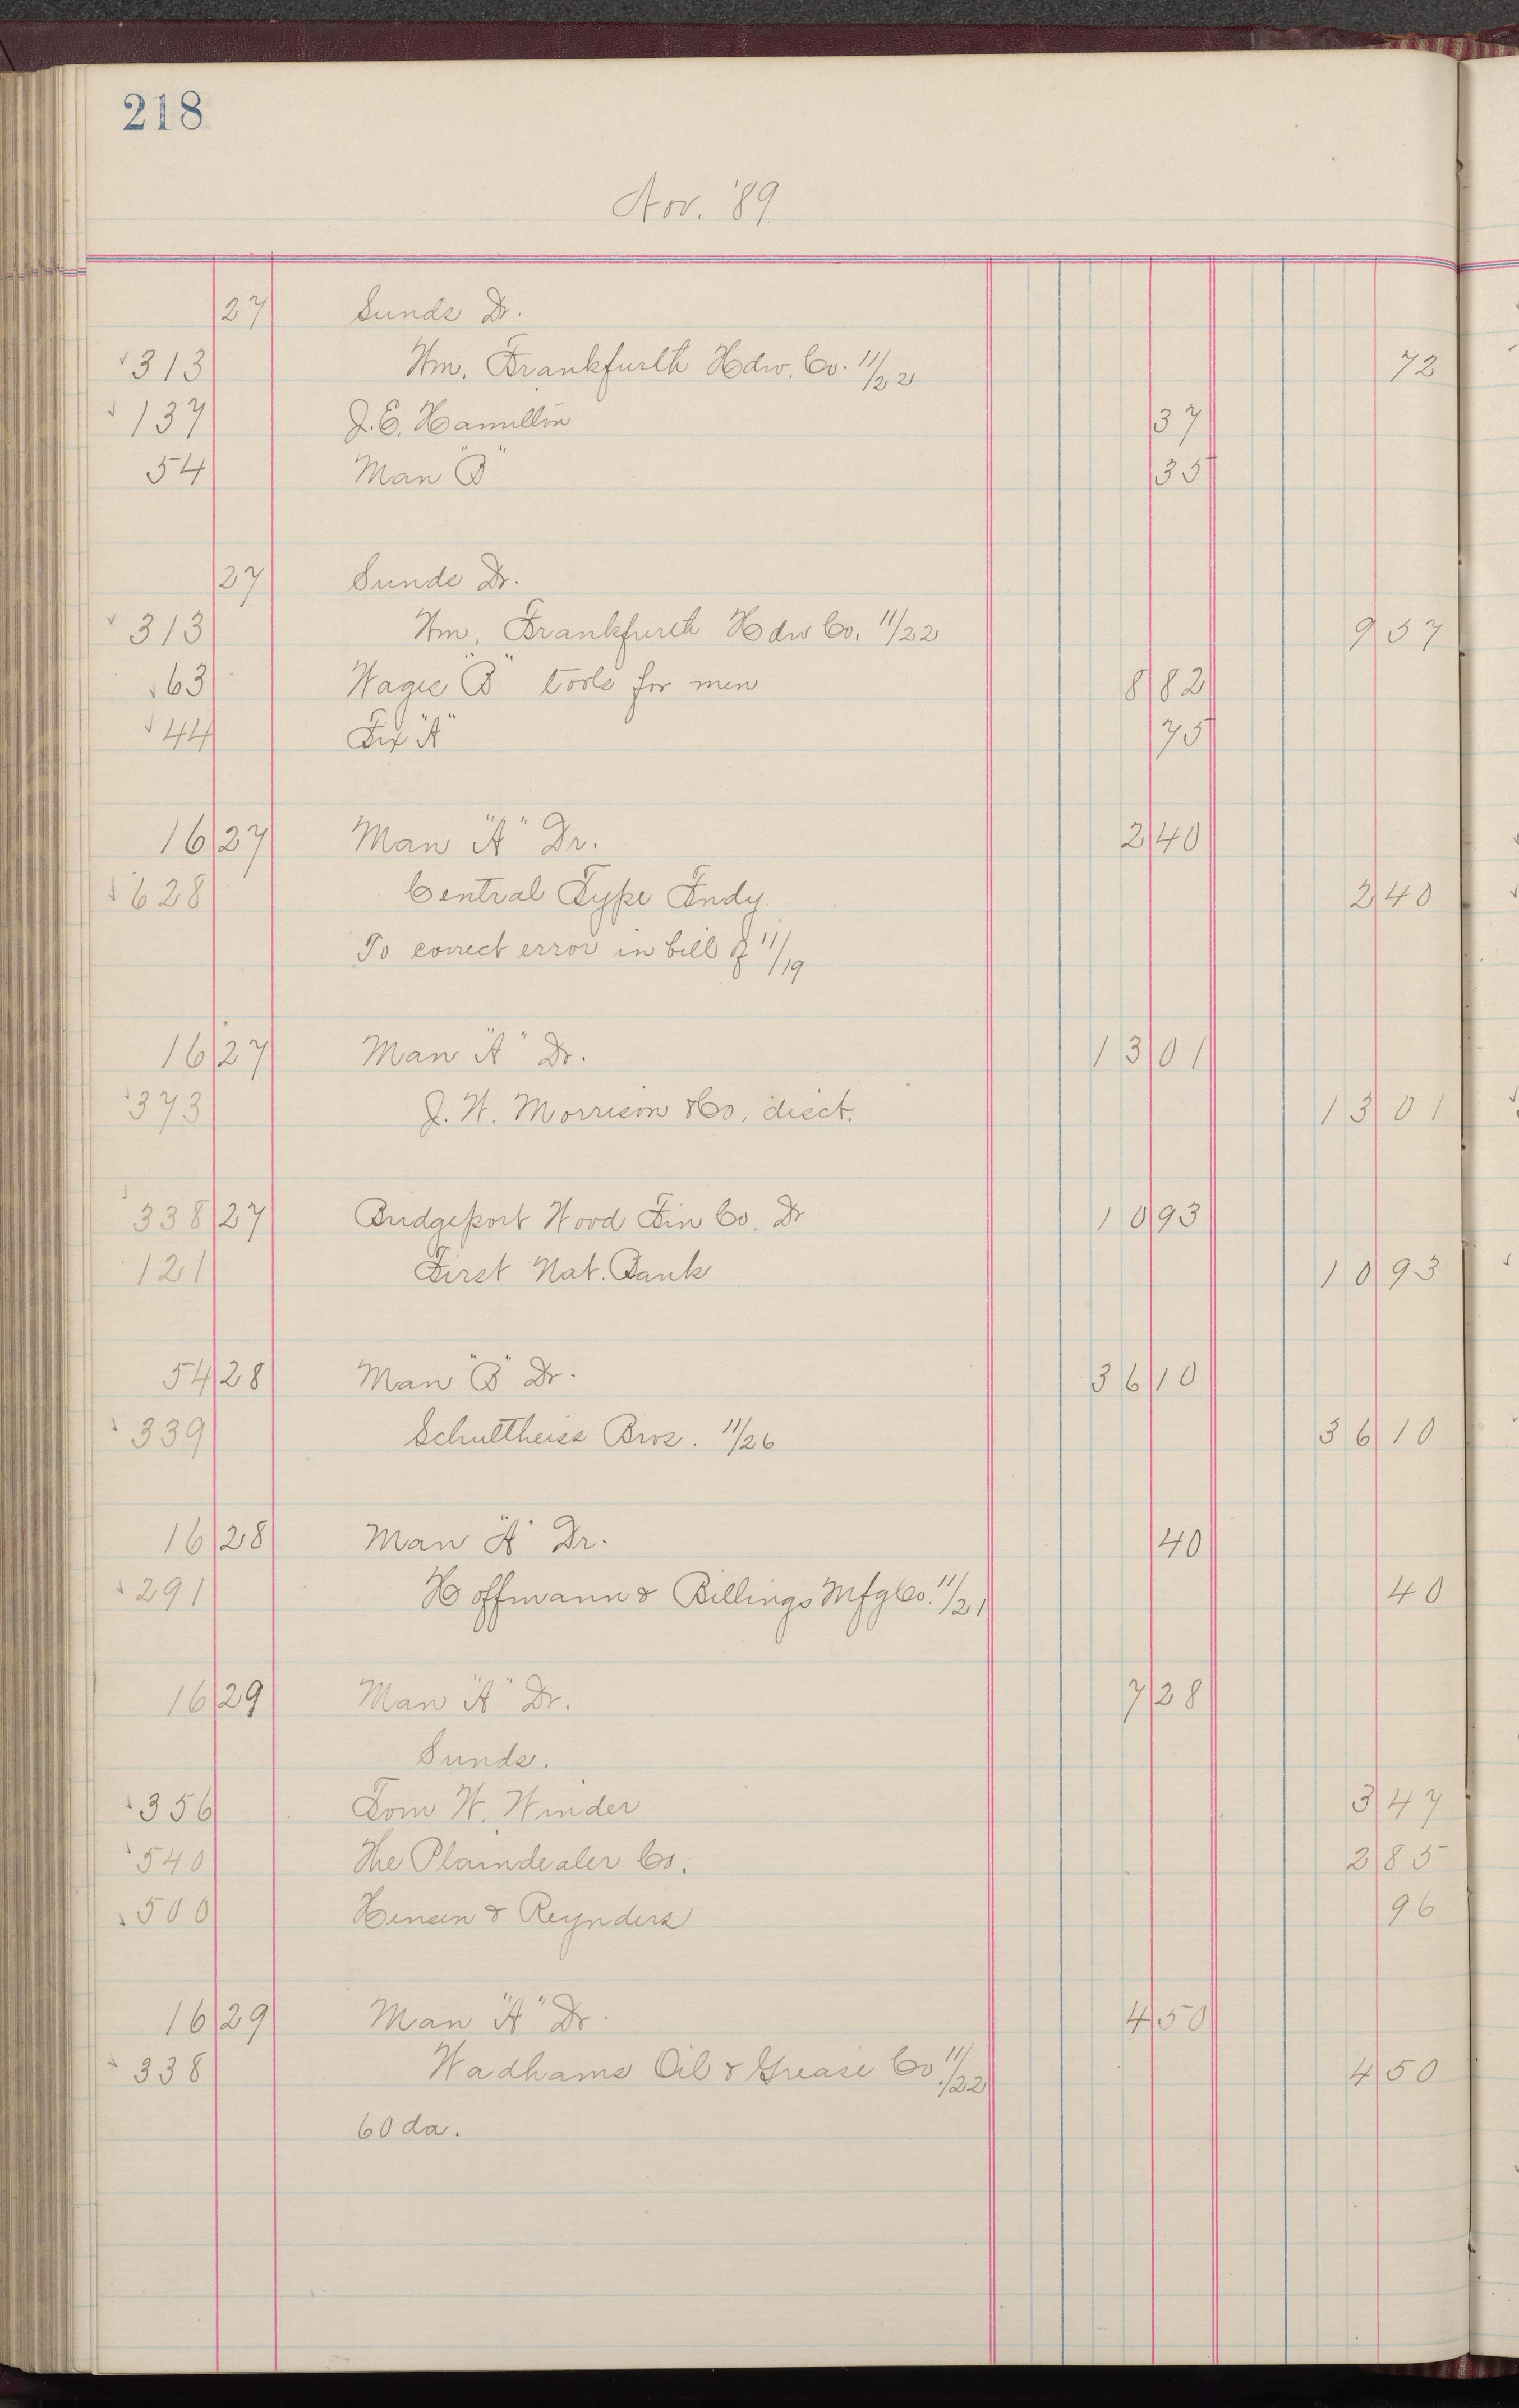 218
Nov. '89
27 Sunds Dr.
313 Wm. Frankfurth Hdw. Co. 11/22 72
137 J.E. Hamilton 37
54 Man "B" 35
27 Sunds Dr.
313 Wm. Frankfurth Hdw Co. 11/22 9 57
63 Wages "B" tools for men 8 82
44 Fix "A" 75
16 27 Man "A" Dr. 2 40
628 Central Type Fndy 2 40
To correct error in bill of 11/19
16 27 Man "A" Dr. 13 01
373 J. W. Morrison & Co. disct. 13 01
338 27 Bridgeport Wood Fin Co. Dr 10 93
121 First Nat. Bank 10 93
54 28 Man "B" Dr. 36 10
339 Schultheiss Bros. 11/26 36 10
16 28 Man "A" Dr. 40
291 Hoffmann & Billings Mfg Co. 11/21 40
16 29 Man "A" Dr. 7 28
Sunds.
356 Tom W. Winder 3 47
540 The Plaindealer Co. 2 85
500 Hensen & Reynders 96
16 29 Man "A" Dr. 4 50
338 Wadhams Oil & Grease Co. 11/22 4 50
60 da.